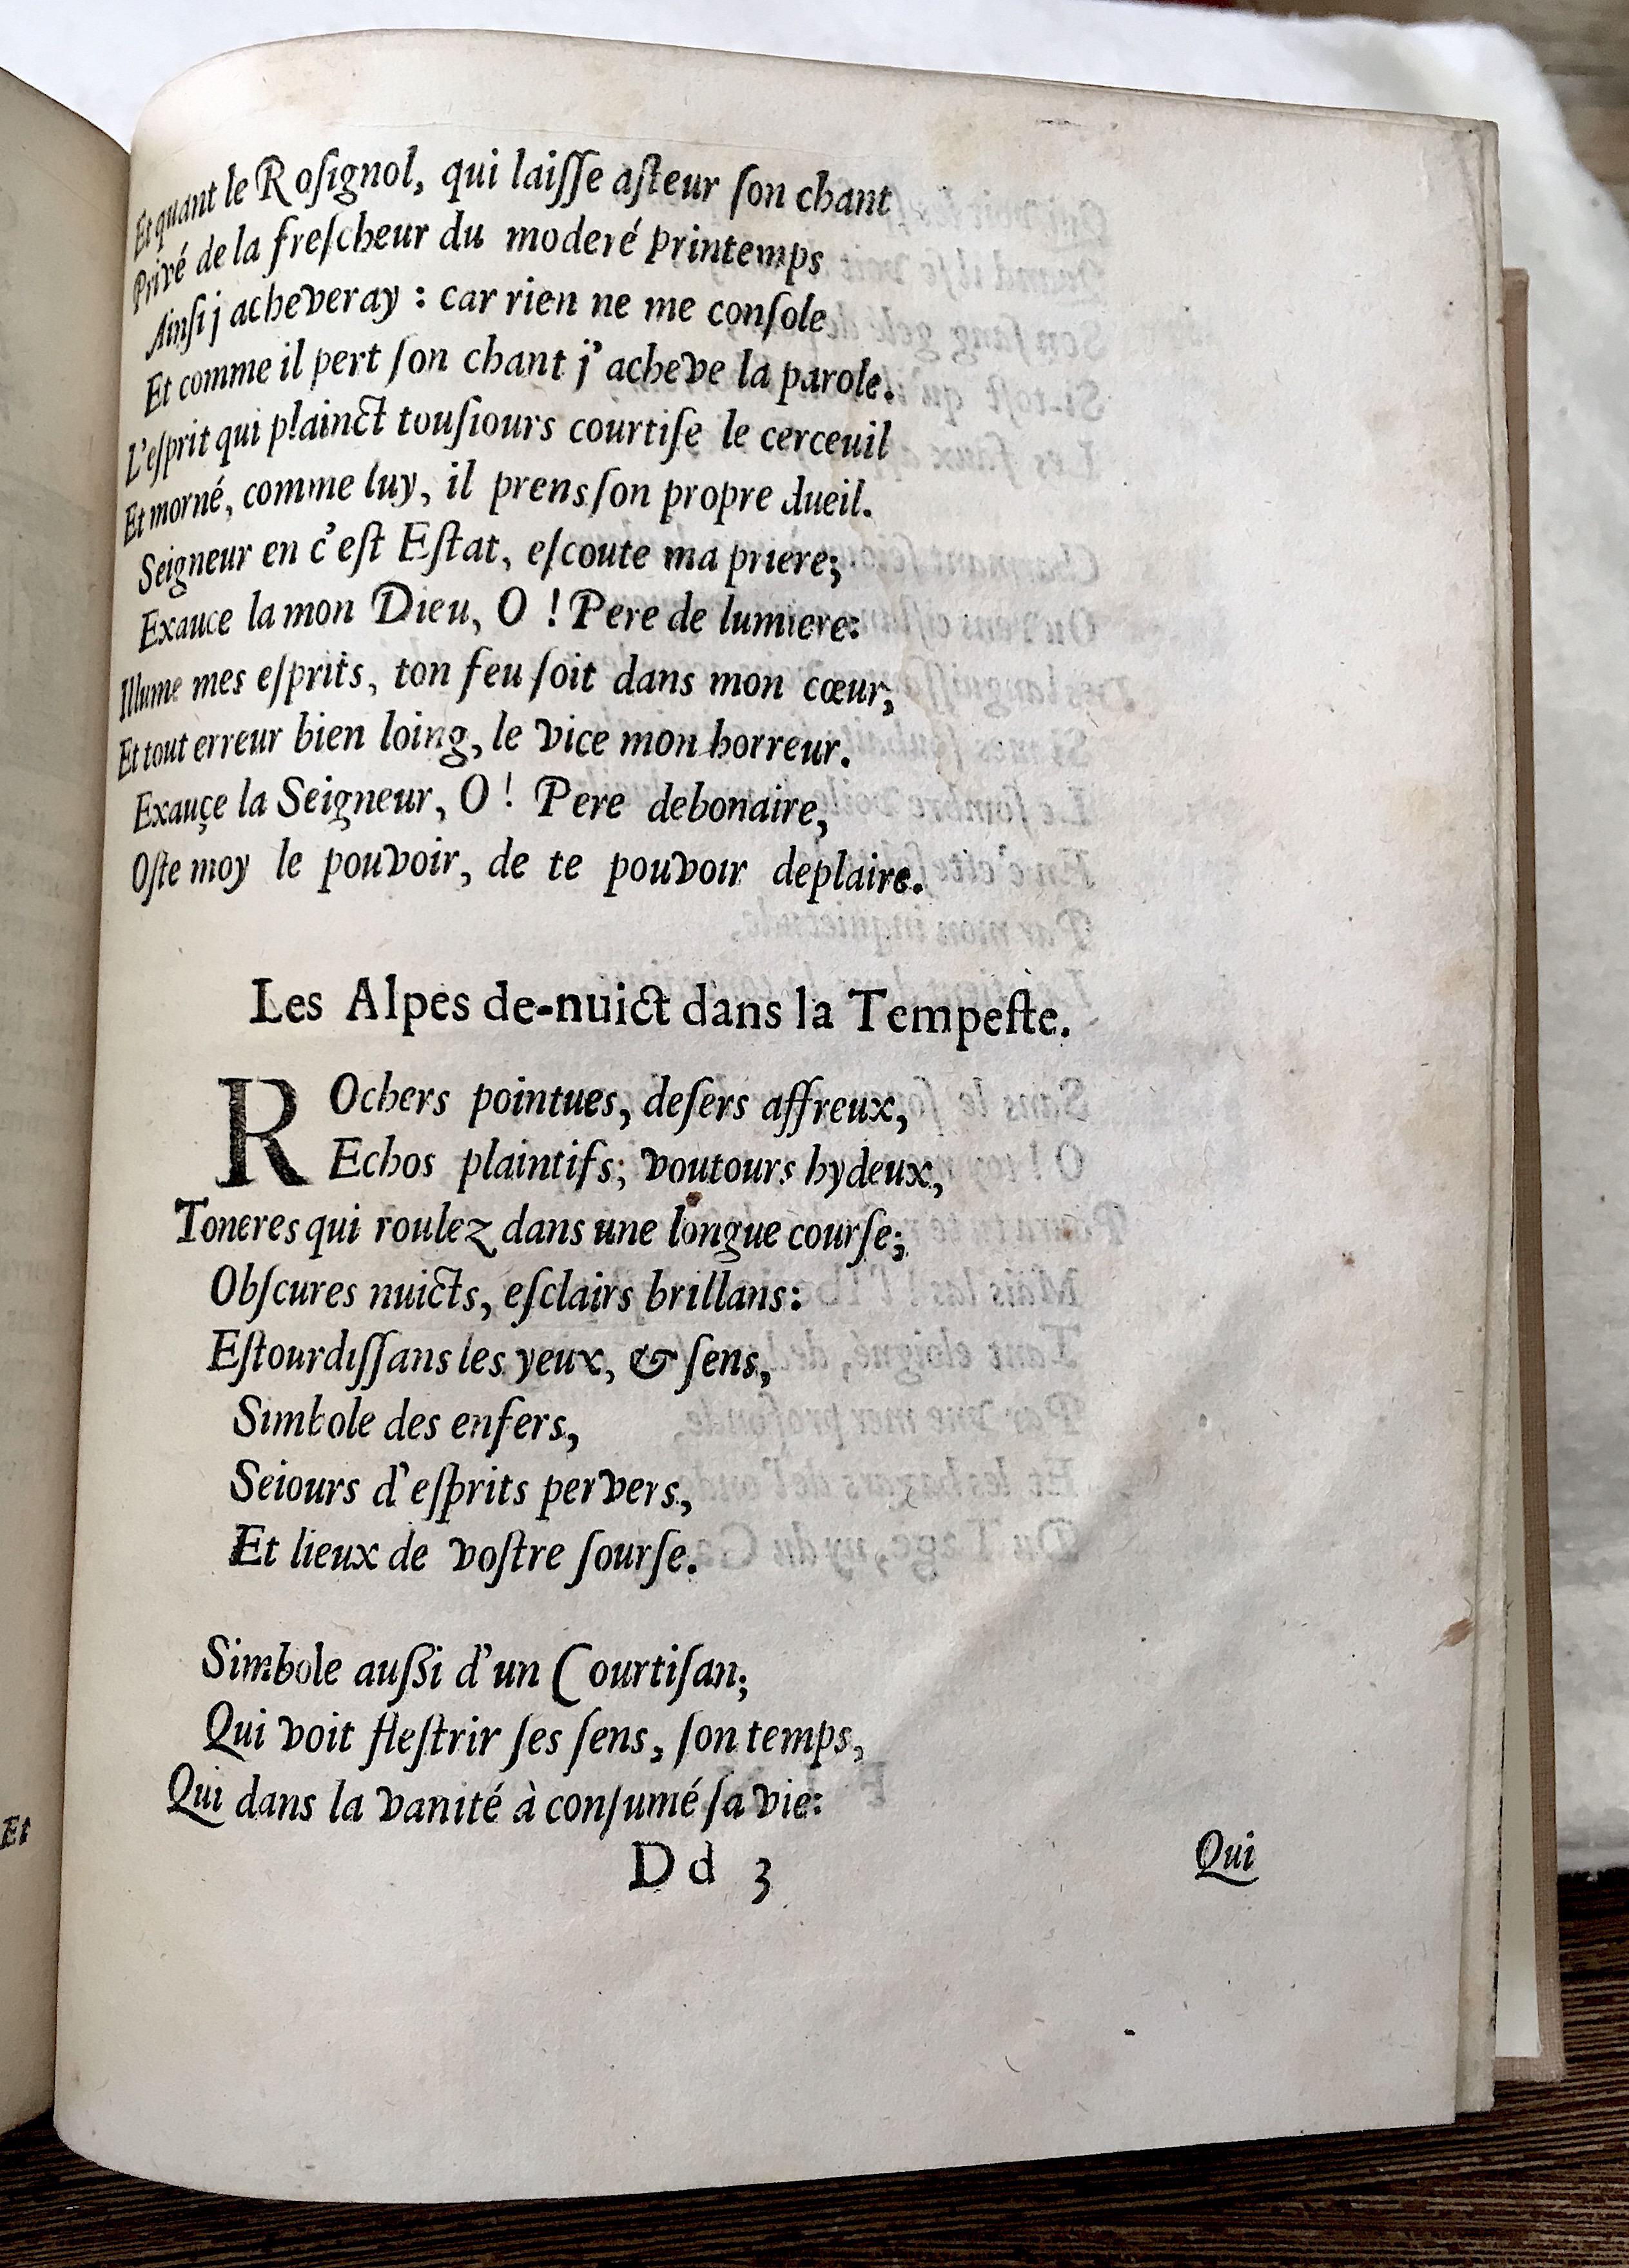 Et quant le Rosignol, qui laiſſe aſteur ſon chant
Privé de la freſcheur du moderé printemps
Ainſi j acheveray : car rien ne me conſole
Et comme il pert ſon chant j'acheve la parole.
L'eſprit qui plainct touſiours courtiſe le cerceuil
Et morné, comme luy, il prens ſon propre dueil.
Seigneur en c'eſt Eſtat, eſcoute ma priere;
Exauce la mon Dieu, O ! Pere de lumiere:
Illume mes eſprits, ton feu ſoit dans mon cœur;
Et tout erreur bien loing, le vice mon horreur.
Exauçe la Seigneur, O ! Pere debonaire,
Oſte moy le pouvoir, de te pouvoir deplaire.
Les Alpes de-nuict dans la Tempeſte.
ROchers pointues, deſers affreux,
Echos plaintifs; voutours hydeux,
Toneres qui roulez dans une longue courſe;
Obſcures nuicts, eſclairs brillans:
Eſtourdiſſans les yeux, & ſens,
Simbole des enfers,
Seiours d'eſprits pervers,
Et lieux de voſtre ſourſe.
Simbole auſsi d'un Courtiſan;
Qui voit fleſtrir ſes ſens, ſon temps,
Qui dans la vanité à conſumé ſa vie:
Dd 3
Qui
Et